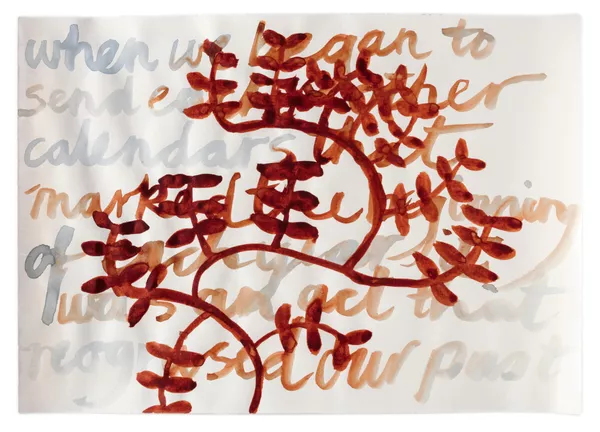 when we began to
send each other
calendars that
marked the beginning
of each year, it
was an act that
recognised our past